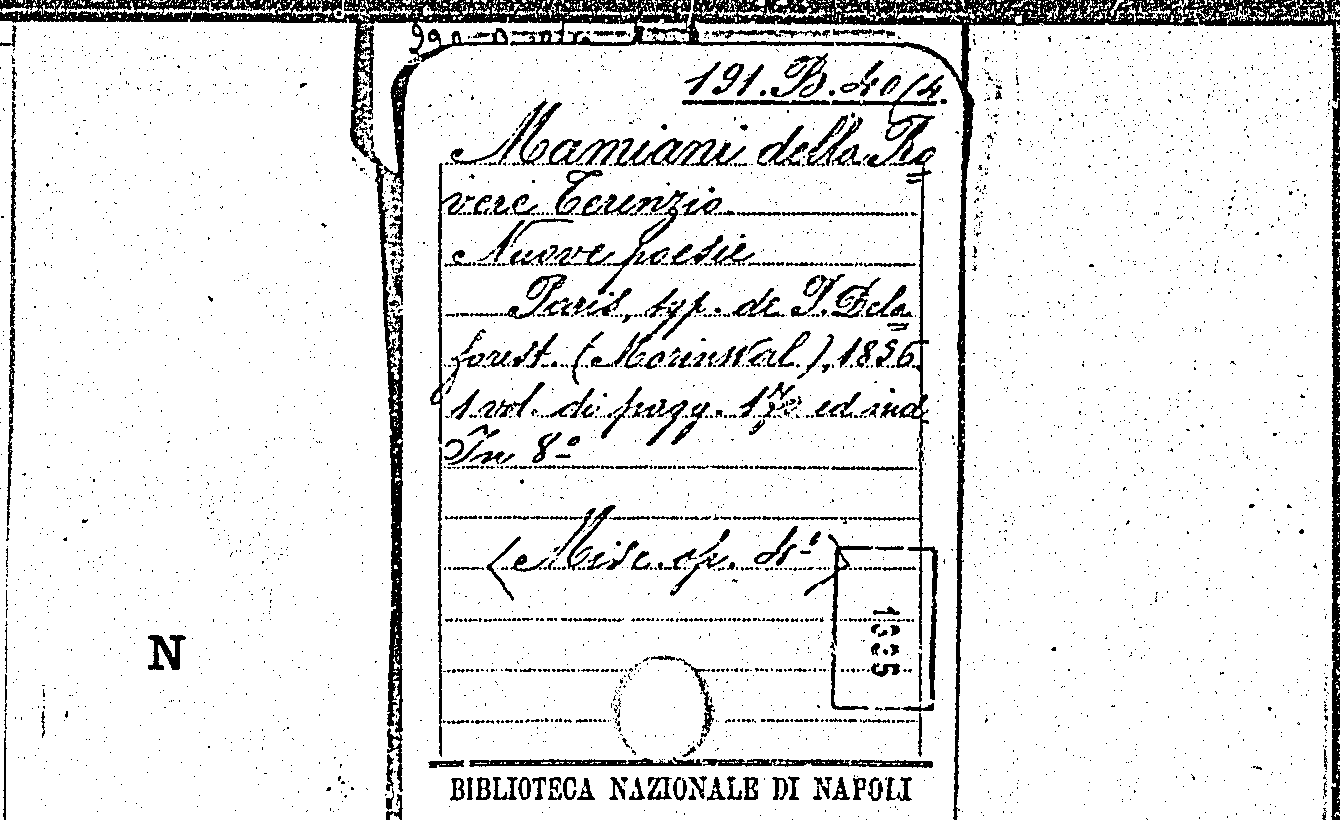 191.B.40/4.
Mamiani della Ro
vere Terenzio
Nuove poesie
Paris, typ. de T. Dela
forest. (Morinval.), 1836
1 vol. di pagg. 170 ed ind
In 8º
(Misc. op. 4ª)
1995
N
BIBLIOTECA NAZIONALE DI NAPOLI